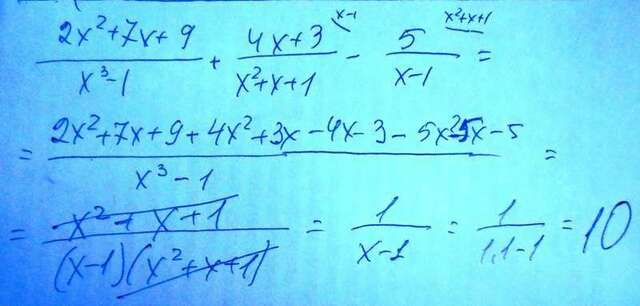 (2x²+7x+9)/(x³-1) + (4x+3)/(x²+x+1) ^(x-1) - 5/(x-1) ^(x²+x+1) =
= (2x²+7x+9+4x²+3x-4x-3-5x²-5x-5)/(x³-1) =
= (x²+x+1)/((x-1)(x²+x+1)) = 1/(x-1) = 1/(1,1-1) = 10